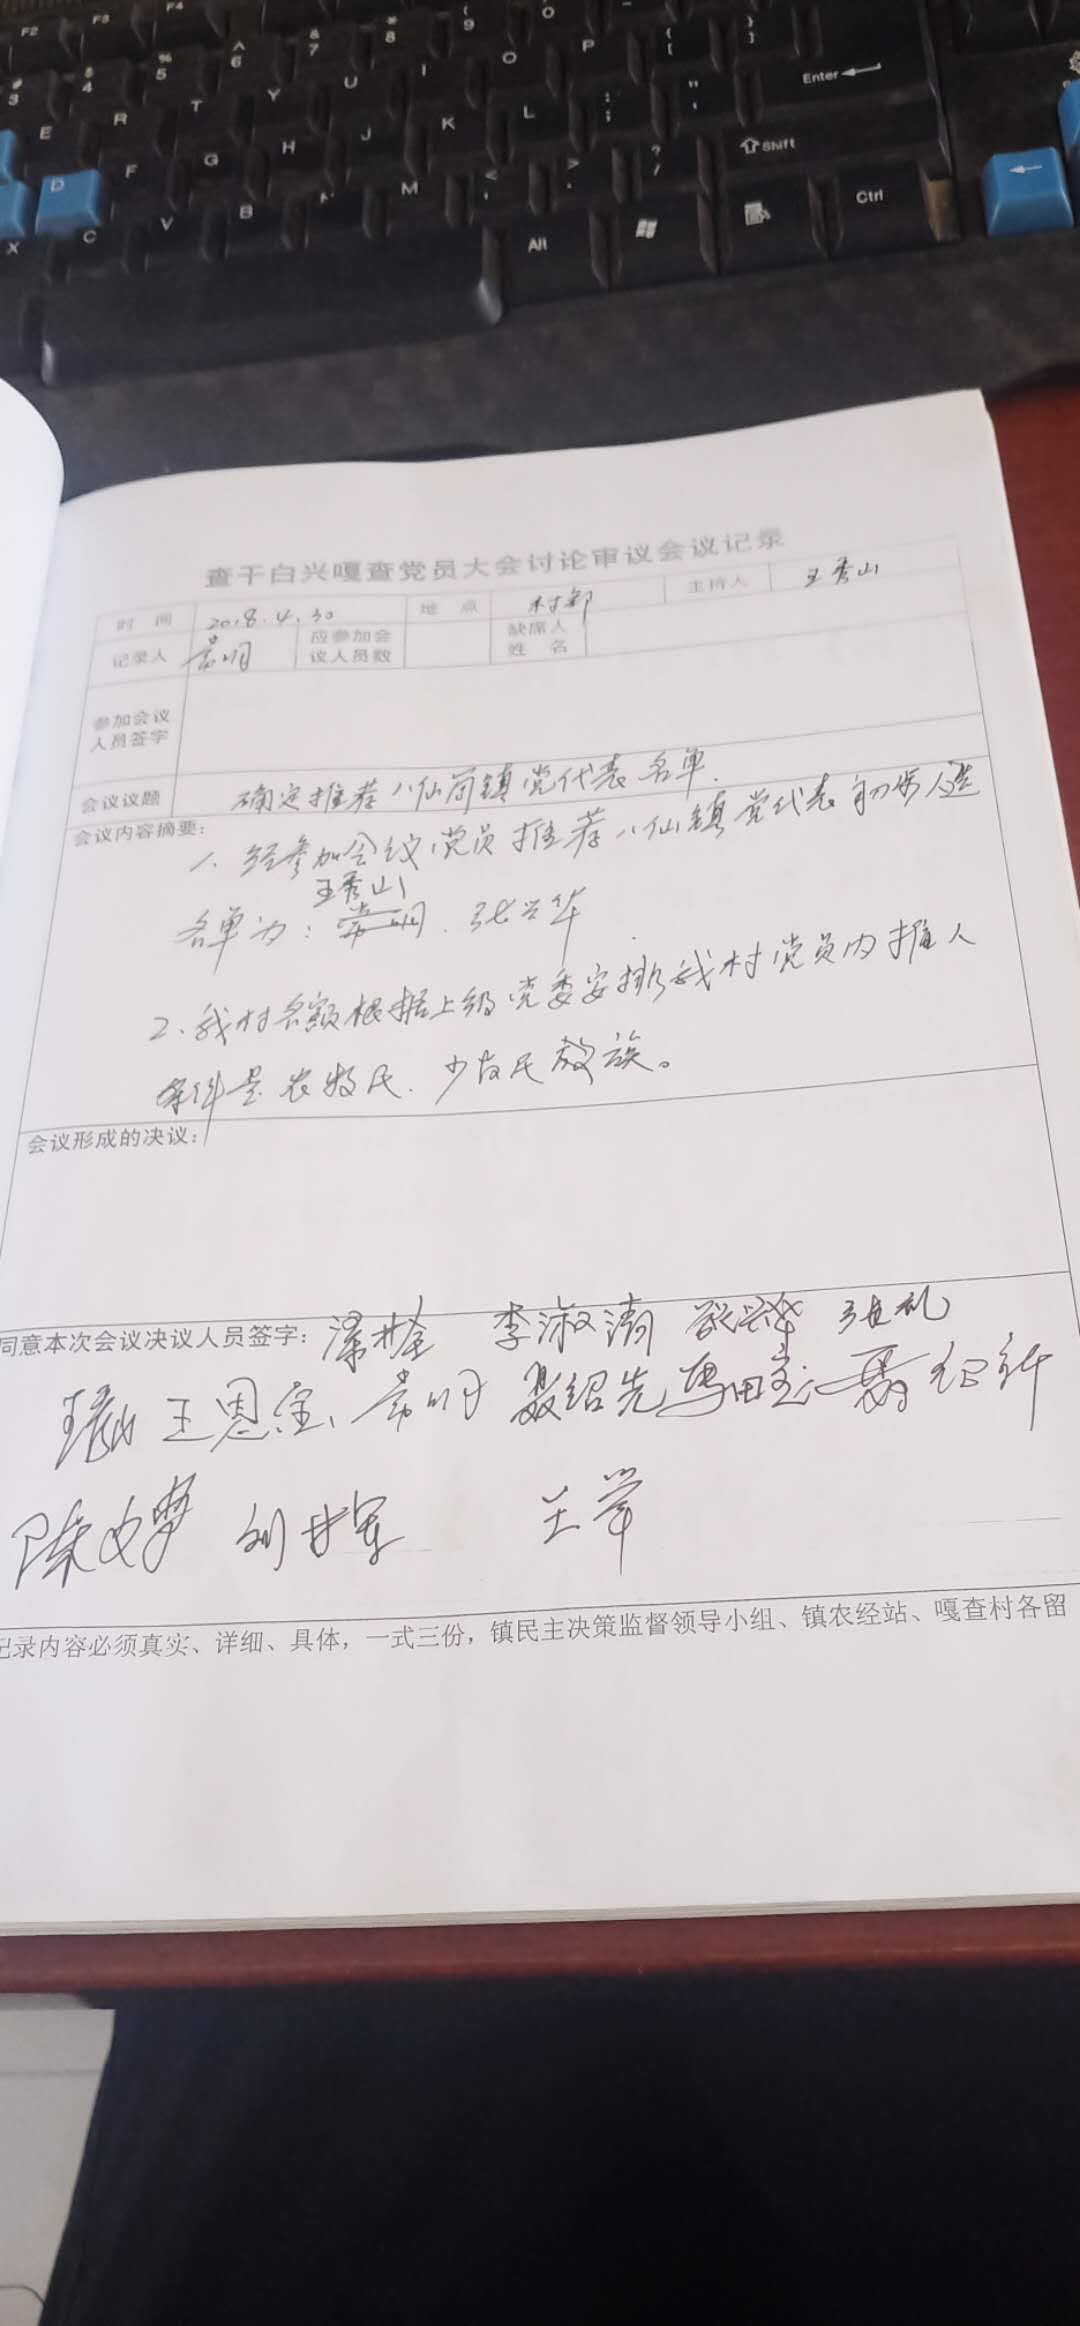 F2 F3 F4
# 3 $ 4 % 5 ^ 6 & 7 * 8 ( 9 O
E R T Y U I O P { [ } ] Enter
D F G H J K L : ; " '
X C V B M < , > . ? / Shift
Alt Ctrl
查干白兴嘎查党员大会讨论审议会议记录
时 间 2018.4.30 地 点 村部 主持人 王秀山
记录人 常明 应参加会议人员数 缺席人姓 名
参加会议
人员签字
会议议题 确定推荐八仙筒镇党代表名单.
会议内容摘要:
1、经参加会议党员推荐八仙镇党代表初步人选
王秀山
名单为: 常明、张兴华
2、我村名额根据上级党委安排我村党员内推人
条件是农牧民、少数民族。
会议形成的决议:
同意本次会议决议人员签字: 李淑清
王恩宝、常明 聂绍先
陈 刘 王
记录内容必须真实、详细、具体,一式三份,镇民主决策监督领导小组、镇农经站、嘎查村各留